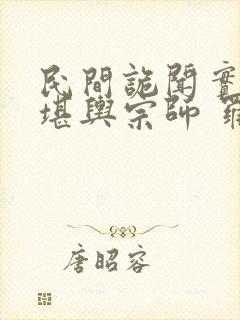 民間詭聞實
堪輿宗師 羅
唐昭容